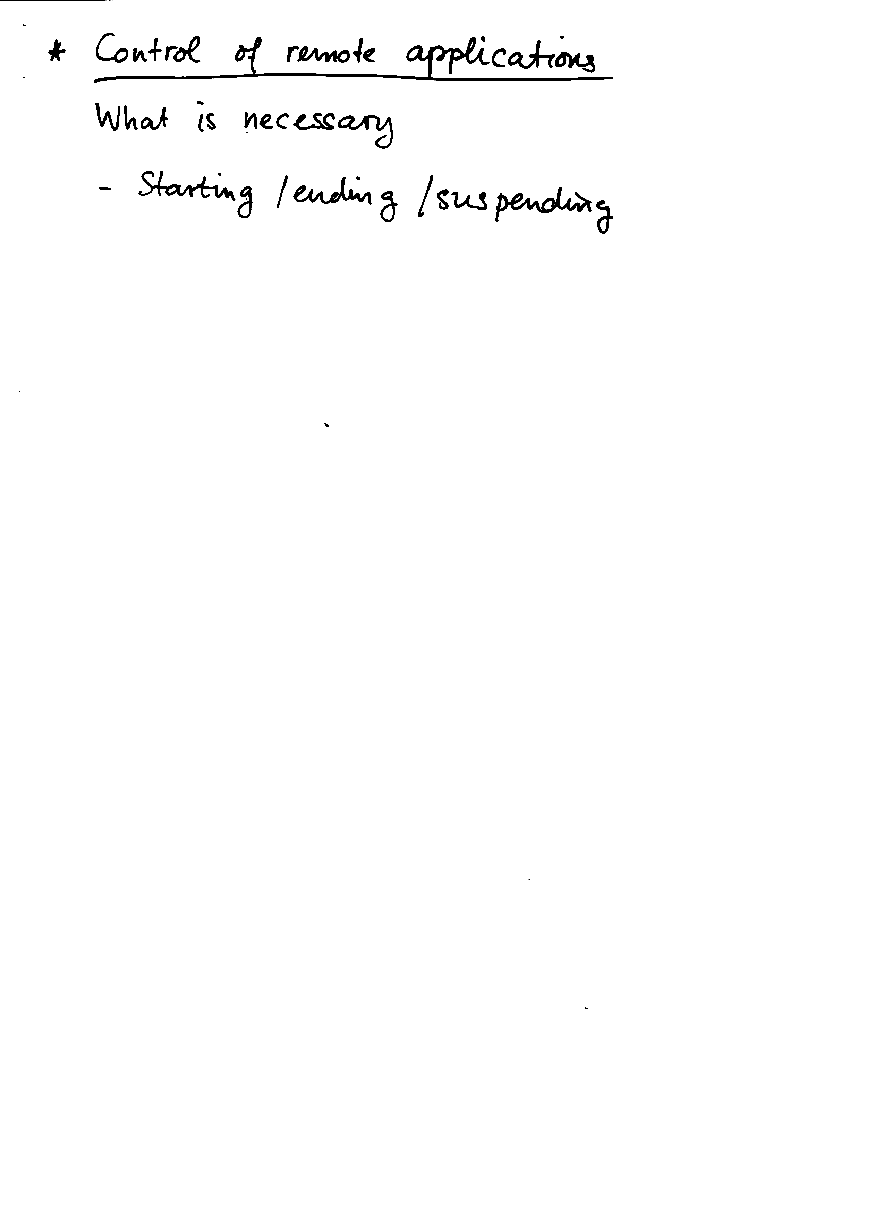 * Control of remote applications
What is necessary
- Starting /ending /suspending